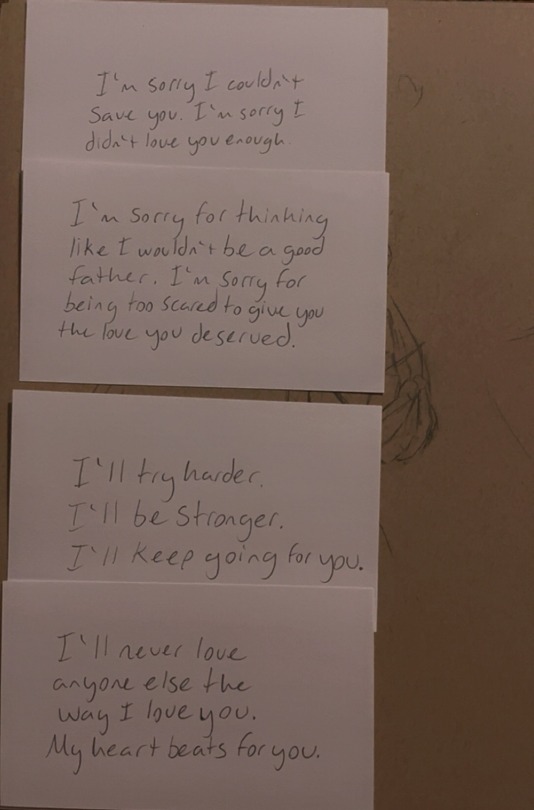 I'm sorry I couldn't
save you. I'm sorry I
didn't love you enough.
I'm sorry for thinking
like I wouldn't be a good
father. I'm sorry for
being too scared to give you
the love you deserved.
I'll try harder.
I'll be stronger.
I'll keep going for you.
I'll never love
anyone else the
way I love you.
My heart beats for you.